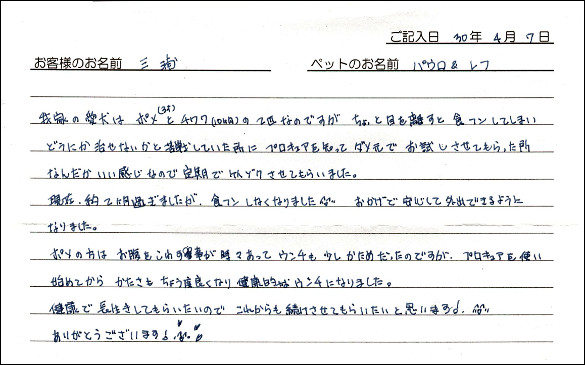 ご記入日 30年 4月 7日
お客様のお名前 三 ペットのお名前 パウロ & レフ
我家の愛犬は ポメ(3才)と チワワ(10ヶ月)の 2匹なのですが ちょっと目を離すと 食フンしてしまい
どうにか治せないかと苦戦していた所に プロキュアを知って ダメ元で お試しさせてもらった所
なんだか いい感じなので 定期で ケイゾクさせてもらいました。
現在、約2ヶ月過ぎましたが、食フン しなくなりました おかげで安心して外出できるように
なりました。
ポメの方は お腹をこわす事が時々あって ウンチも少しかためだったのですが、プロキュアを使い
始めてから かたさも ちょうど良くなり 健康的な ウンチになりました。
健康で 長生きしてもらいたいので これからも 続けさせてもらいたいと思います♪
ありがとうございます♪